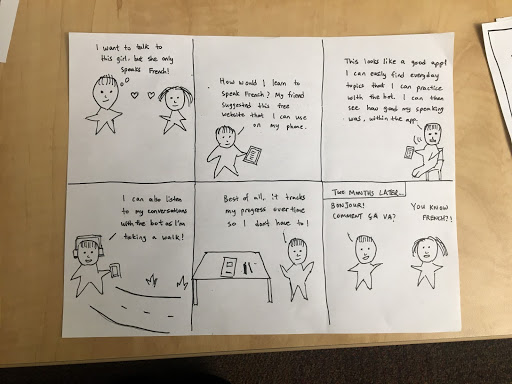 I want to talk to
this girl, but she only
speaks French!
How would I learn to
speak French? My friend
suggested this free
website that I can use
on my phone.
This looks like a good app!
I can easily find everyday
topics that I can practice
with the bot. I can then
see how good my speaking
was, within the app.
I can also listen
to my conversations
with the bot as I'm
taking a walk!
Best of all, it tracks
my progress over time
so I don't have to!
TWO MONTHS LATER...
BONJOUR!
COMMENT ÇA VA?
YOU KNOW
FRENCH?!